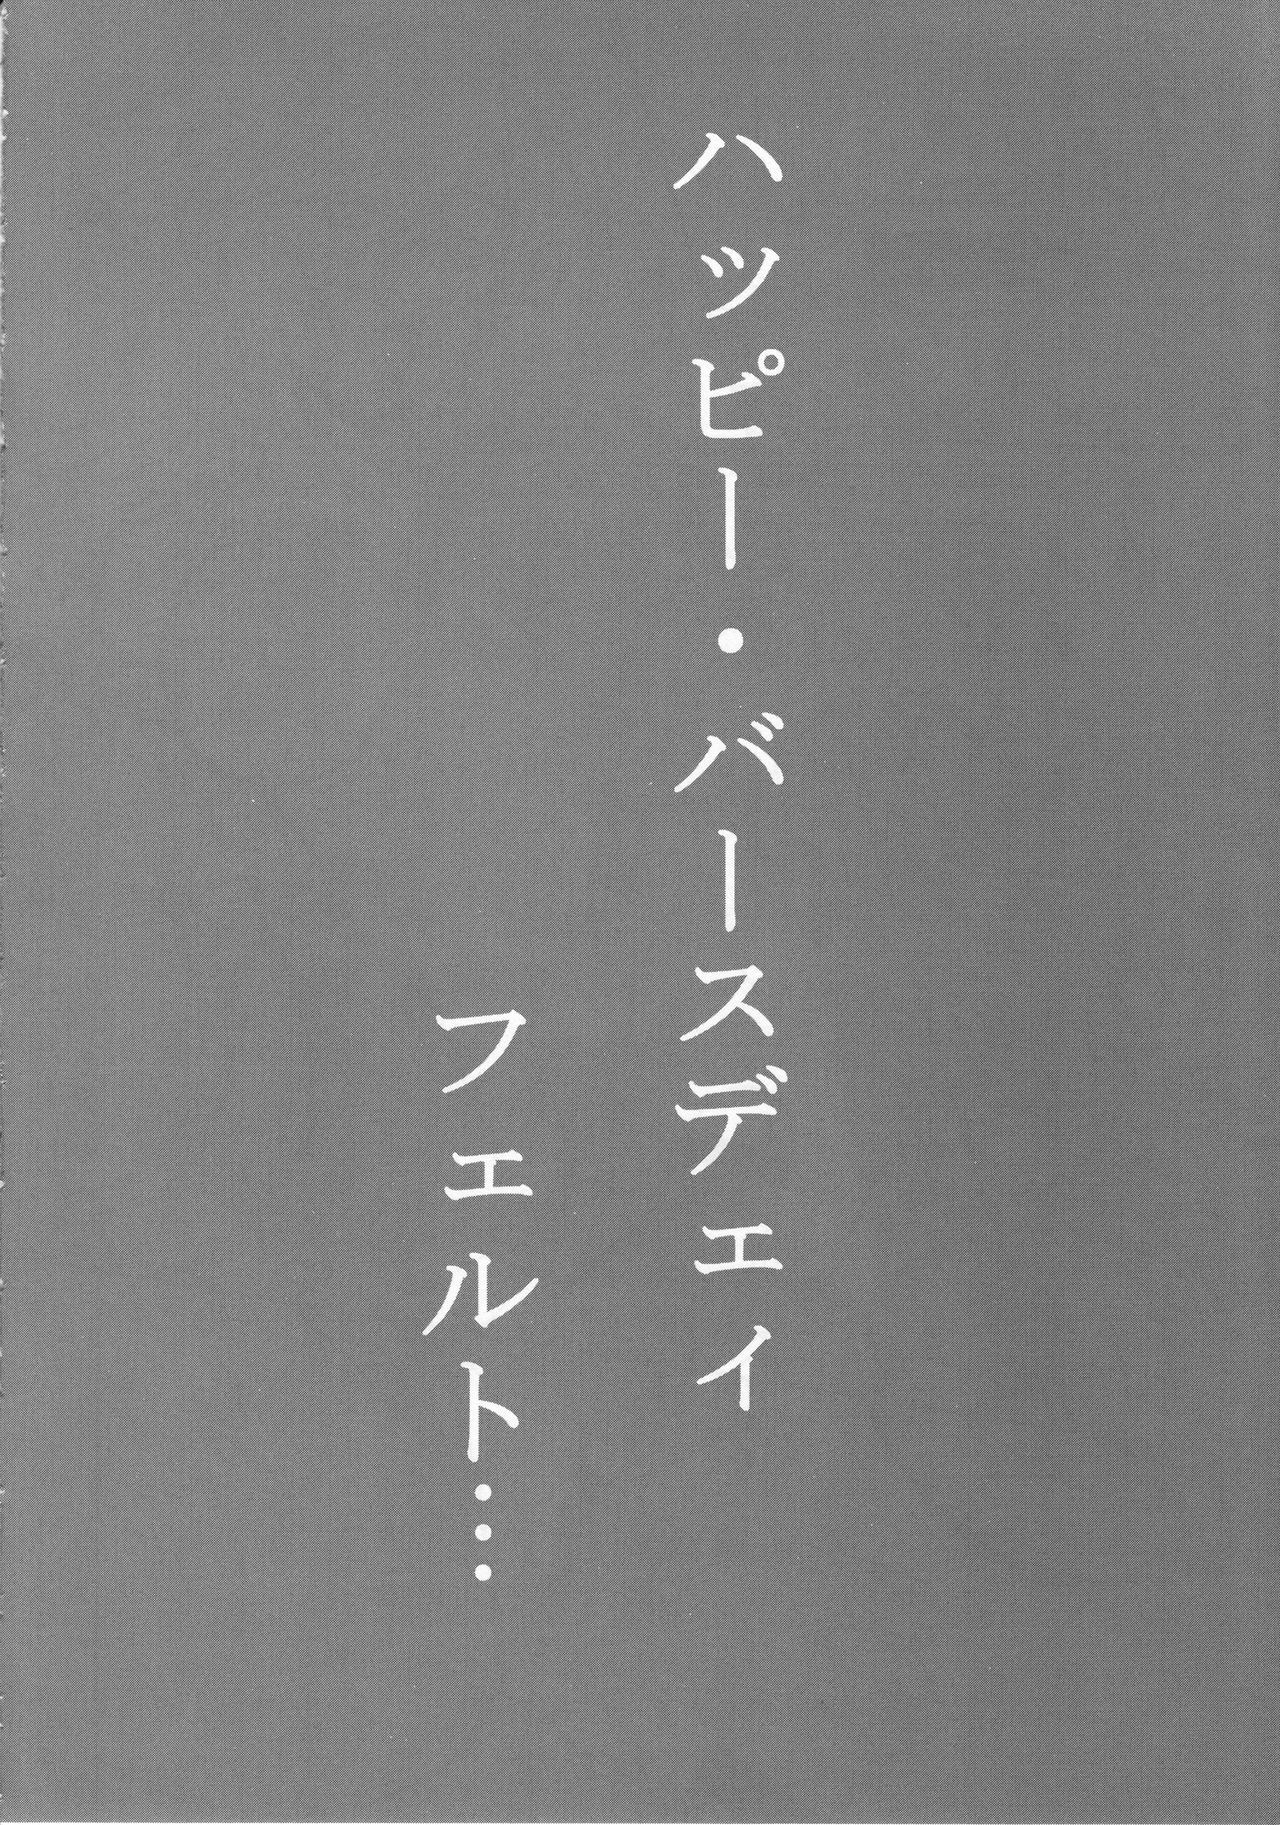 ハッピー・バースデェイ
フェルト…